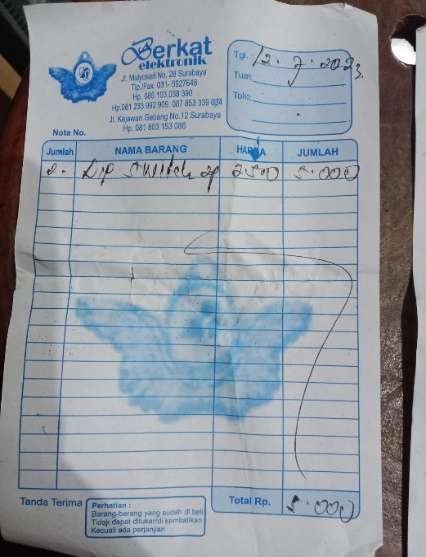 Berkat
elektronik
Jl. Mulyosari No. 28 Surabaya
Tlp./Fax. 031- 5927648
Hp. 085 103 038 390
Hp.081 233 992 909, 087 853 339 038
Jl. Kejawan Gebang No.12 Surabaya
Hp. 081 803 153 086
Tgl. 12.7.2023.
Tuan
Toko
Nota No.
Jumlah NAMA BARANG HARGA JUMLAH
2. Dip Switch 2p 2500 5.000
Tanda Terima
Perhatian :
Barang-barang yang sudah di beli
Tidak dapat ditukar/di kembalikan
Kecuali ada perjanjian
Total Rp. 5.000